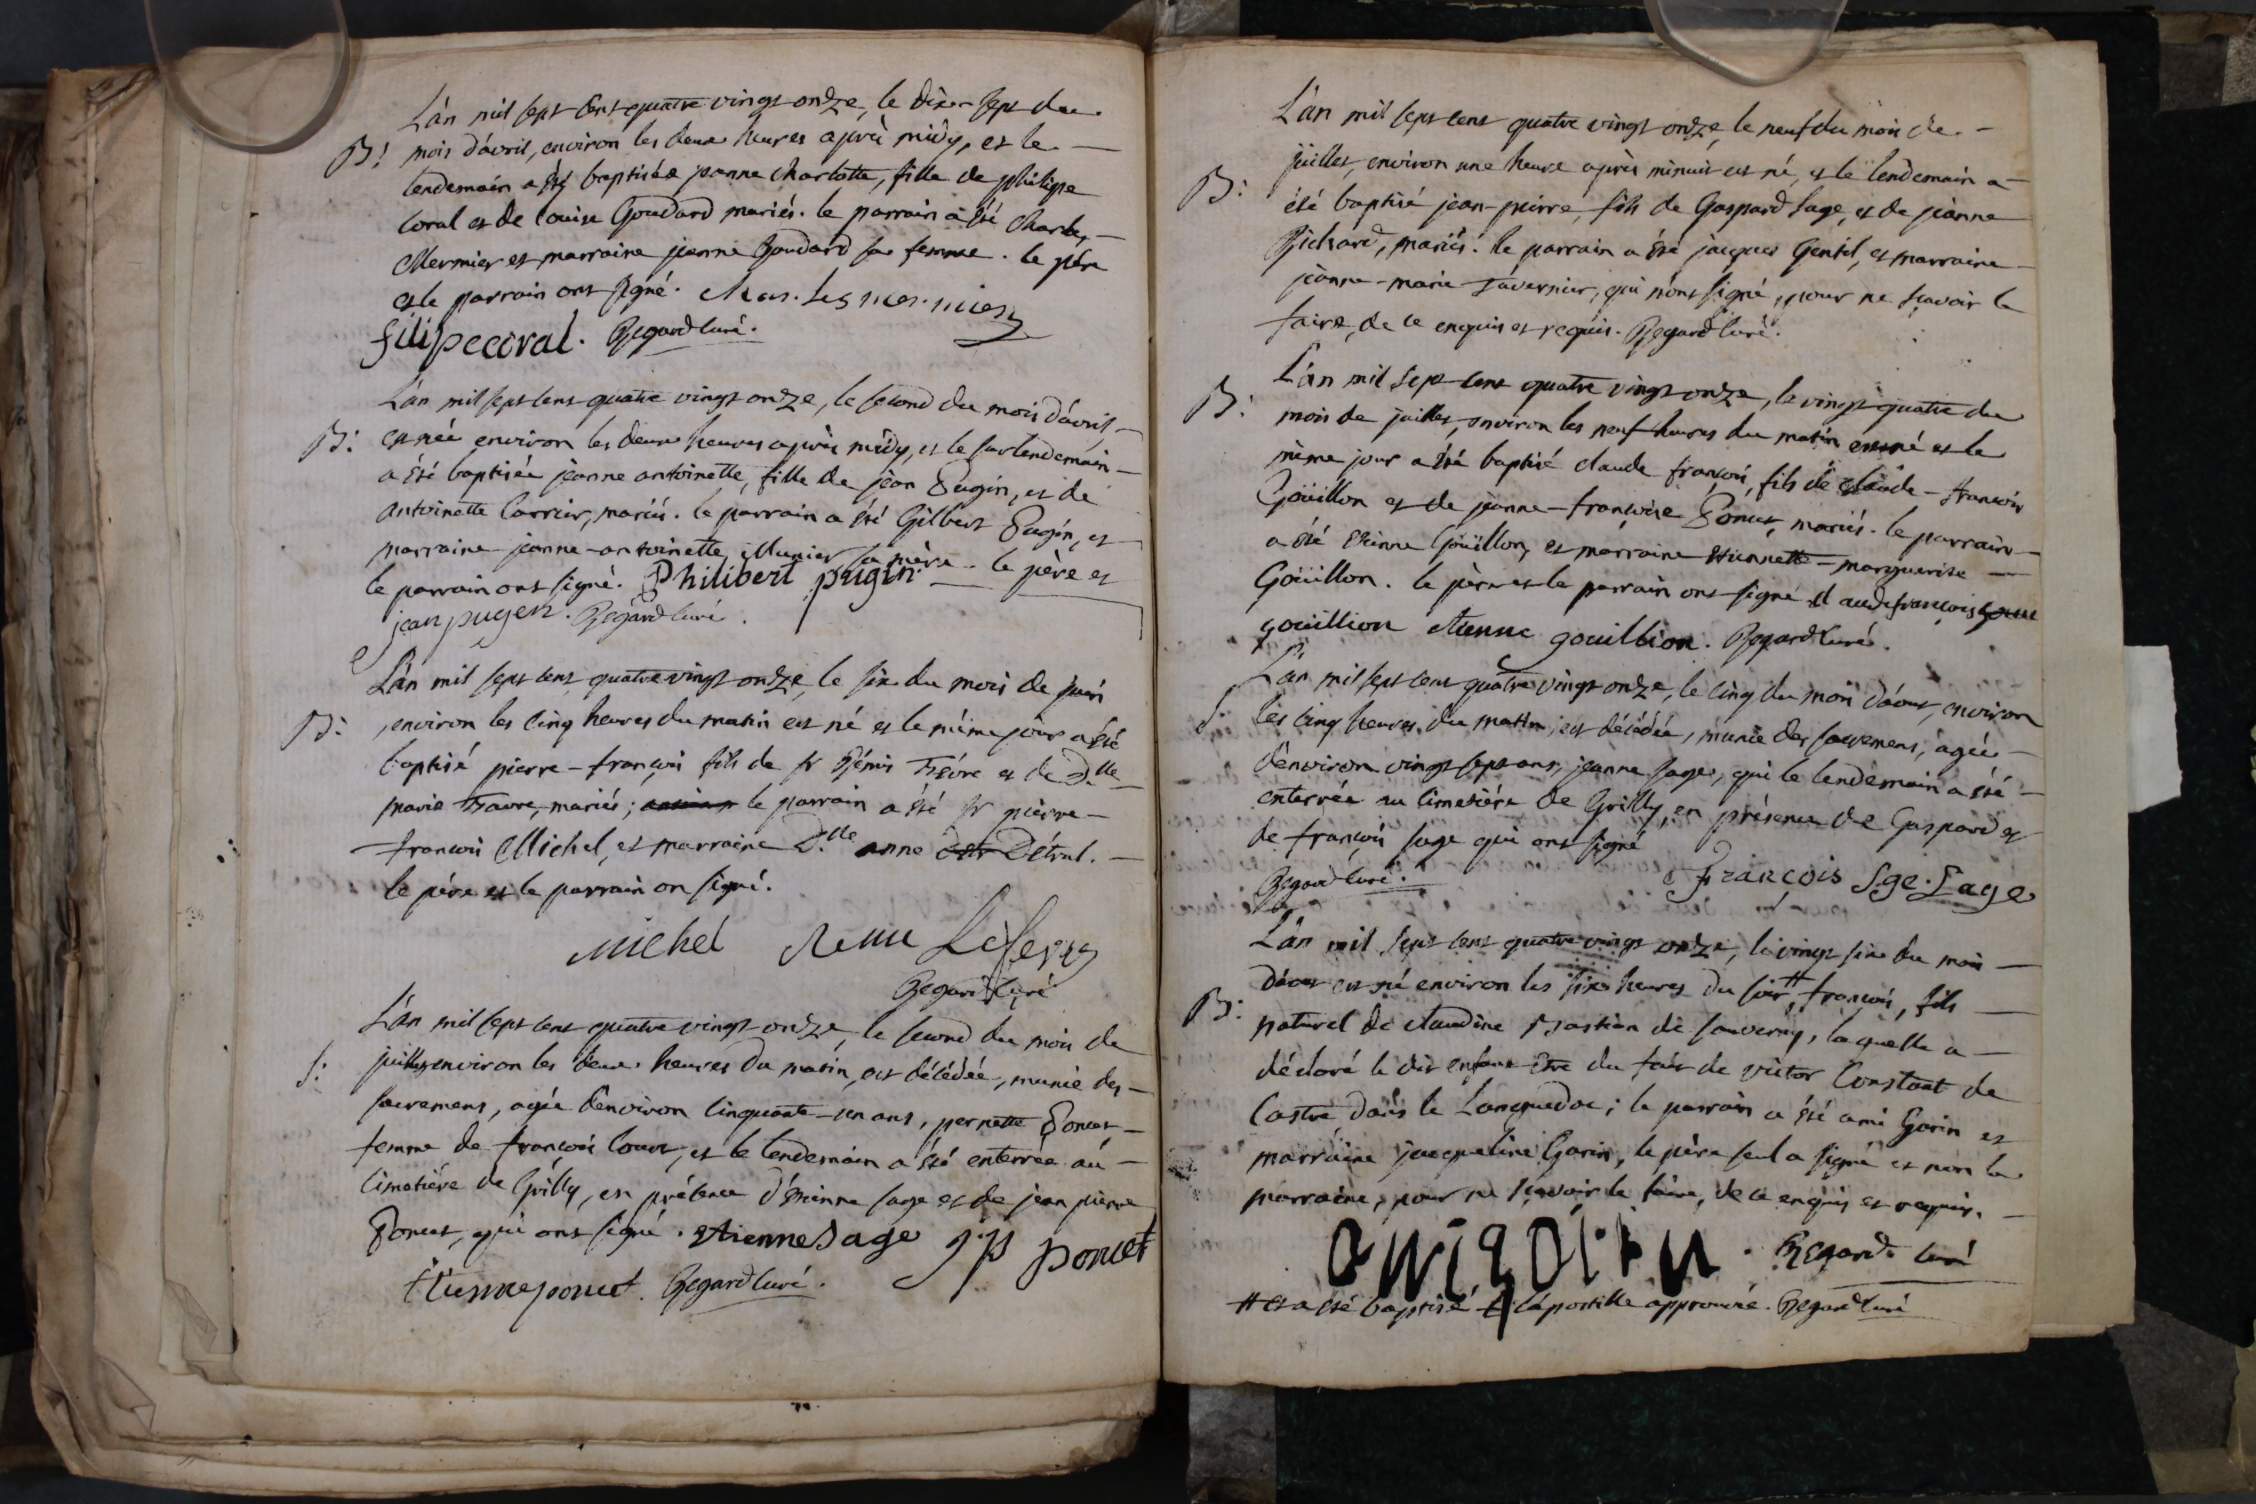 L'an mil sept cens quatre vingt onze, le dix sept du
B: mois d'avril, environ les deux heures après midy, et le
lendemain a été baptisée jeanne charlotte, fille de philipe
Coral et de Louise Goudard mariés. le parrain a été charles
Mermier et marraine jeanne Goudard sa femme. le père
et le parrain ont signé. charles mermier
filipe coral. Regard curé.
L'an mil sept cens quatre vingt onze, le second du mois d'avril,
B: est née environ les deux heures après midy, et le surlendemain
a été baptisée jeanne antoinette, fille de jean Pugin, et de
antoinette Carrier, mariés. le parrain a été Gilbert Pugin, et
marraine jeanne-antoinette Munier sa mère. le père et
le parrain ont signé. Philibert pugin.
jean pugen. Regard curé.
L'an mil sept cens quatre vingt onze, le six du mois de juin
B: environ les cinq heures du matin est né et le même jour a été
baptisé pierre-françois fils de sr Rémis et de Dlle
marie Favre, mariés; le parrain a été sr pierre-
françois Michel, et marraine Dlle anne Détral.
le père et le parrain on signé.
Michel Remi Lefevre
Regard curé
L'an mil sept cens quatre vingt onze, le second du mois de
S: juillet environ les deux heures du matin, est décédée, munie des
sacremens, agée d'environ cinquante-un ans, pernette Poncet
femme de françois et le lendemain a été enterrée au
cimetière de Grilly, en présence d'étienne sage et de jean pierre
Poncet, qui ont signé. etienne Sage jp poncet
étienne poncet. Regard curé.
L'an mil sept cens quatre vingt onze, le neuf du mois de
B: juillet, environ une heure après minuit est né, et le lendemain a
été baptisé jean-pierre, fils de Gaspard Sage, et de jeanne
Richard, mariés. le parrain a été jacques Gentil, et marraine
jeanne-marie Tavernier, qui n'ont signé, pour ne sçavoir le
faire, de ce enquis et requis. Regard curé.
L'an mil sept cens quatre vingt onze, le vingt quatre du
B: mois de juillet, environ les neuf heures du matin est né et le
même jour a été baptisé claude françois, fils de claude-françois
Goüillon et de jeanne-françoise Poncet, mariés. le parrain
a été étienne Goüillon, et marraine étiennette-marguerite
Goüillon. le père et le parrain ont signé claude françois
gouillion etienne gouillion. Regard curé.
L'an mil sept cens quatre vingt onze, le cinq du mois d'aout, environ
S: les cinq heures du matin, est décédée, munie des sacremens, agée
d'environ vingt sept ans, jeanne sage, qui le lendemain a été
enterrée au cimetière de Grilly, en présence de Gaspard et
de françois sage qui ont signé
Regard curé. François Sge. Sage
L'an mil sept cens quatre vingt onze, le vingt six du mois
d'aout est né environ les six heures du soir # françois, fils
B: naturel de claudine Bastian de sauverny, laquelle a
déclaré le dit enfant être du fait de victor Constant de
Castre dans le Languedoc; le parrain a été ami Gorin et
marraine jacqueline Gorin, le père seul a signé et non la
marraine, pour ne sçavoir le faire, de ce enquis et requis.
ami gorin. Regard curé
# et a été baptisé L'apostille approuvée. Regard curé